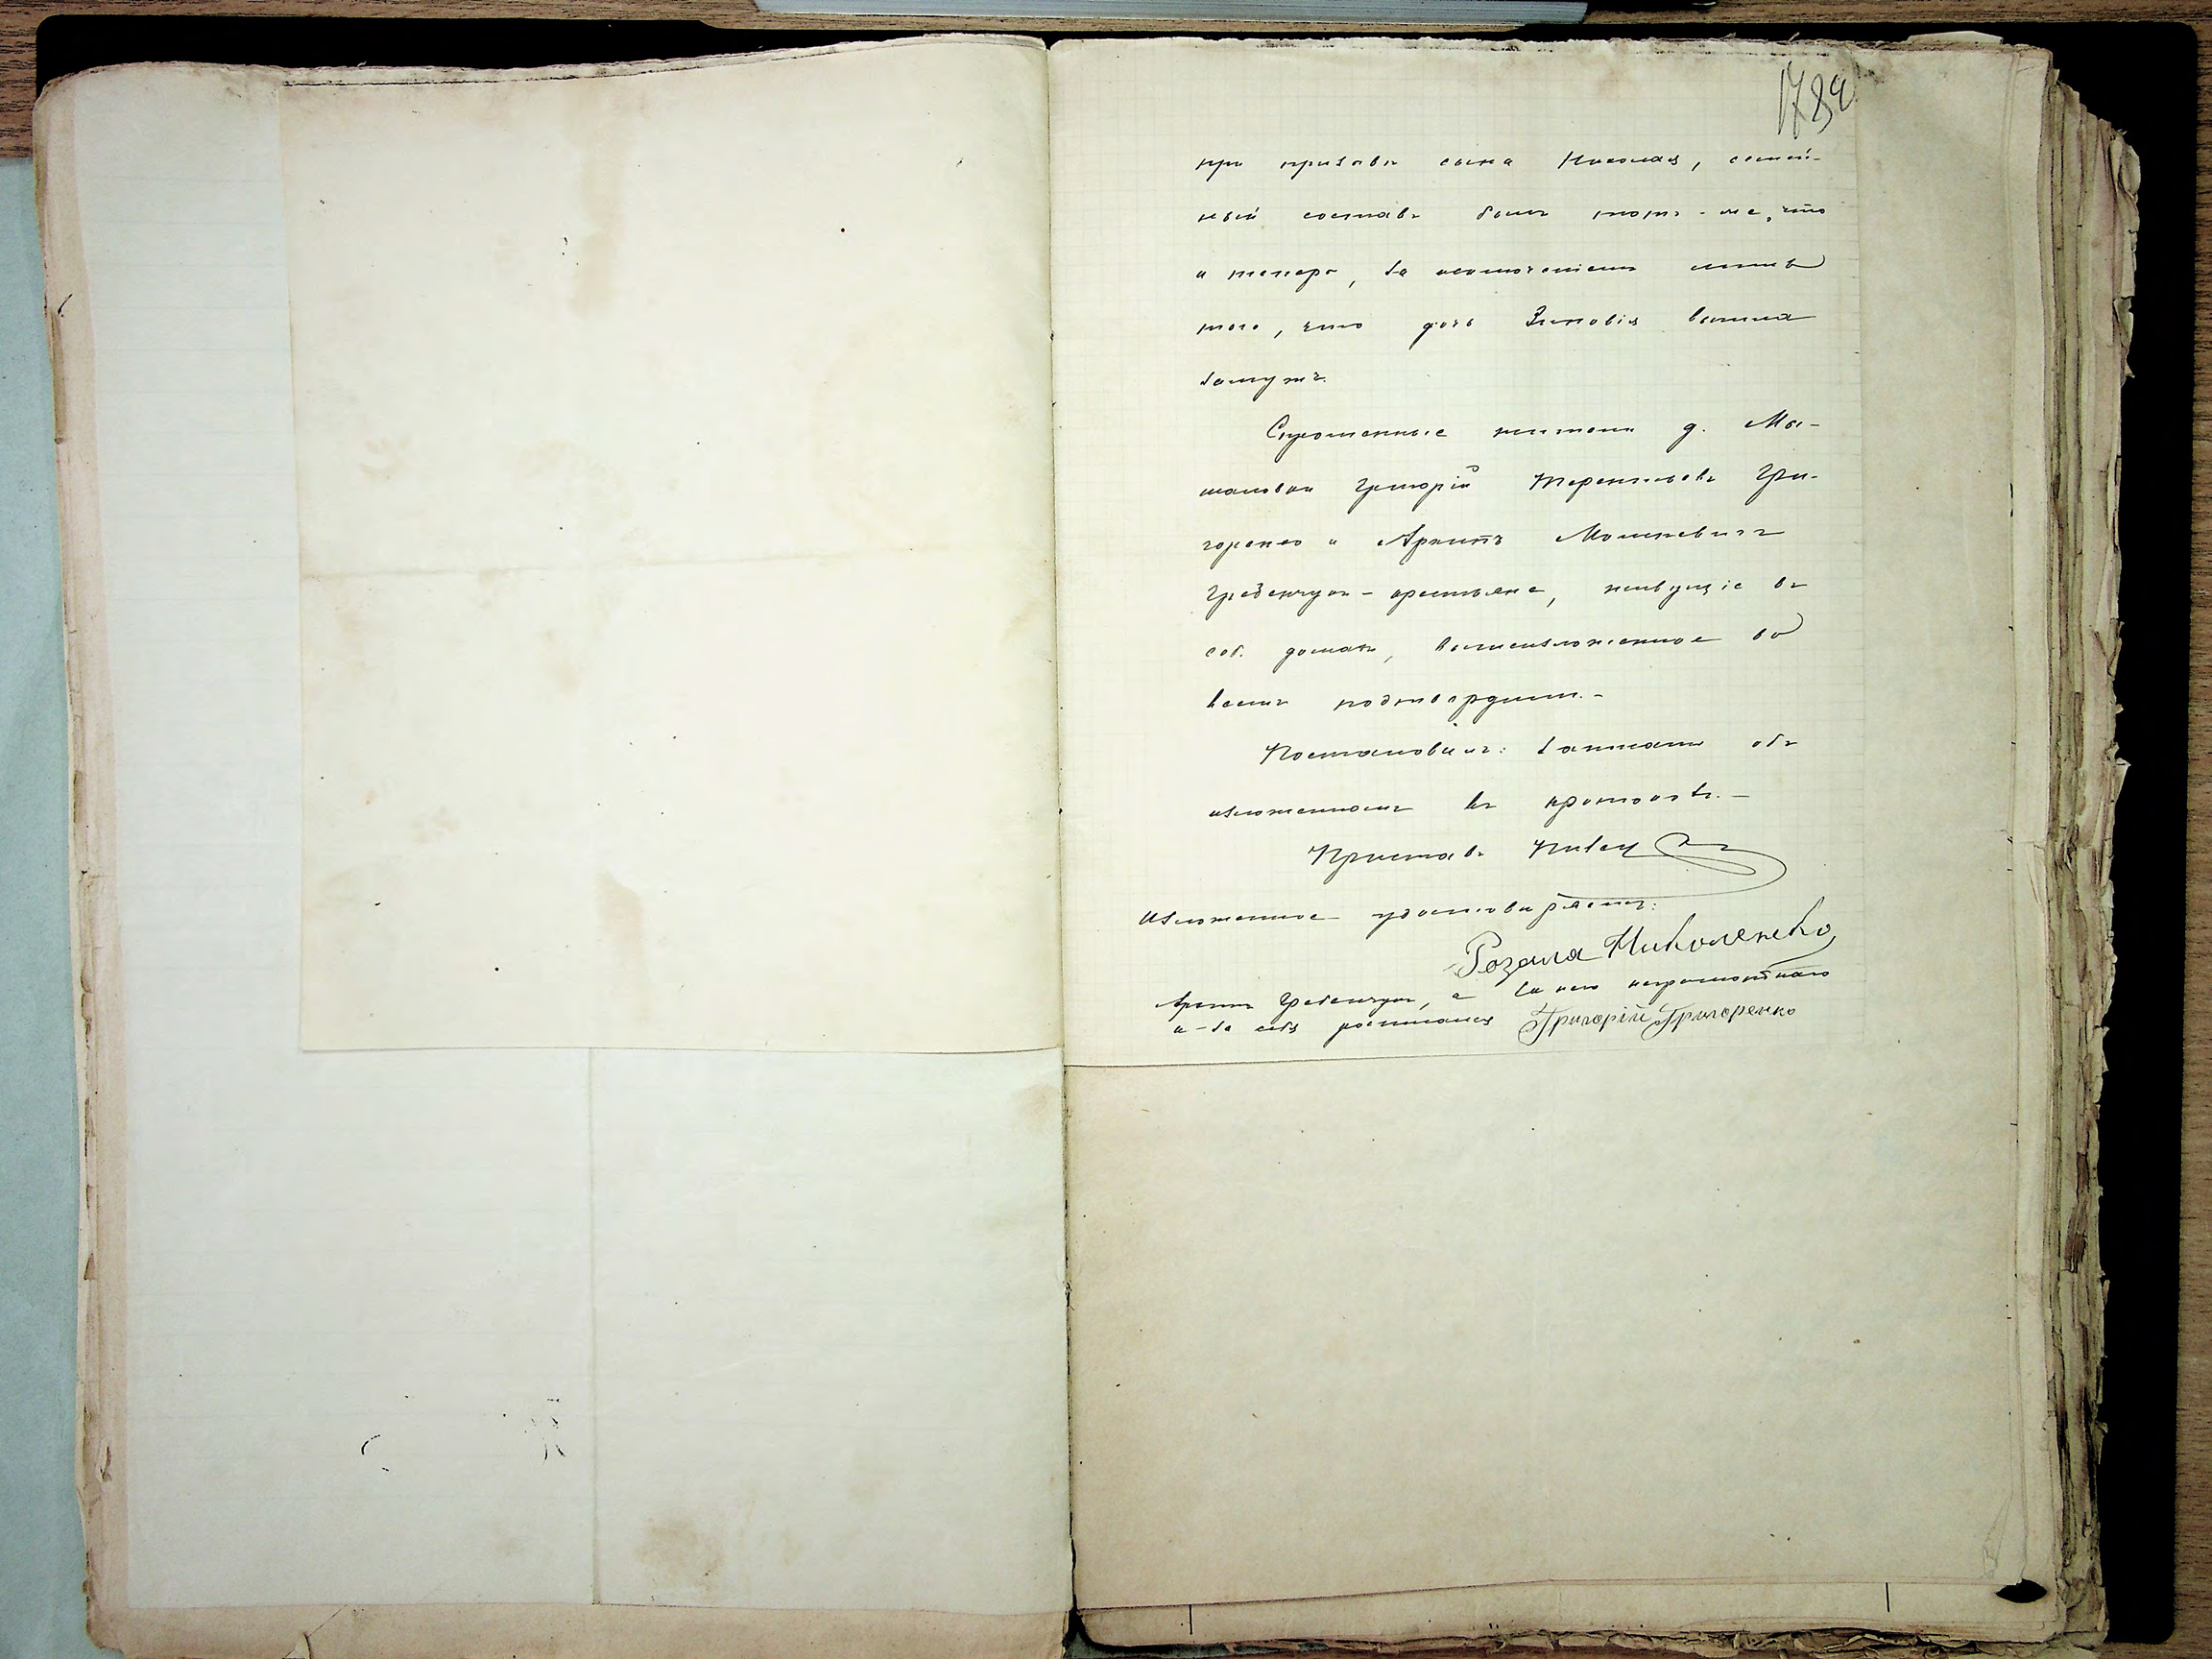 1784
при призывѣ сына Николая, семей-
ный составъ былъ тотъ-же, что
и теперь, за исключеніемъ лишь
того, что дочь Зиновія вышла
замужъ.
Спрошенные жители д. Мы-
шаловки Григорій Терентьевъ Гри-
горенко и Архипъ Моисеевичъ
Гребенчукъ - крестьяне, живущіе въ
соб. домахъ, вышеизложенное во
всемъ подтвердили.-
Постановилъ: записать объ
изложенномъ въ протоколъ.-
Приставъ
Изложенное удостовѣряемъ:
Розалія Николенко
Архипъ Гребенчукъ, а за него неграмотнаго
и-за себя росписался Григорій Григоренко